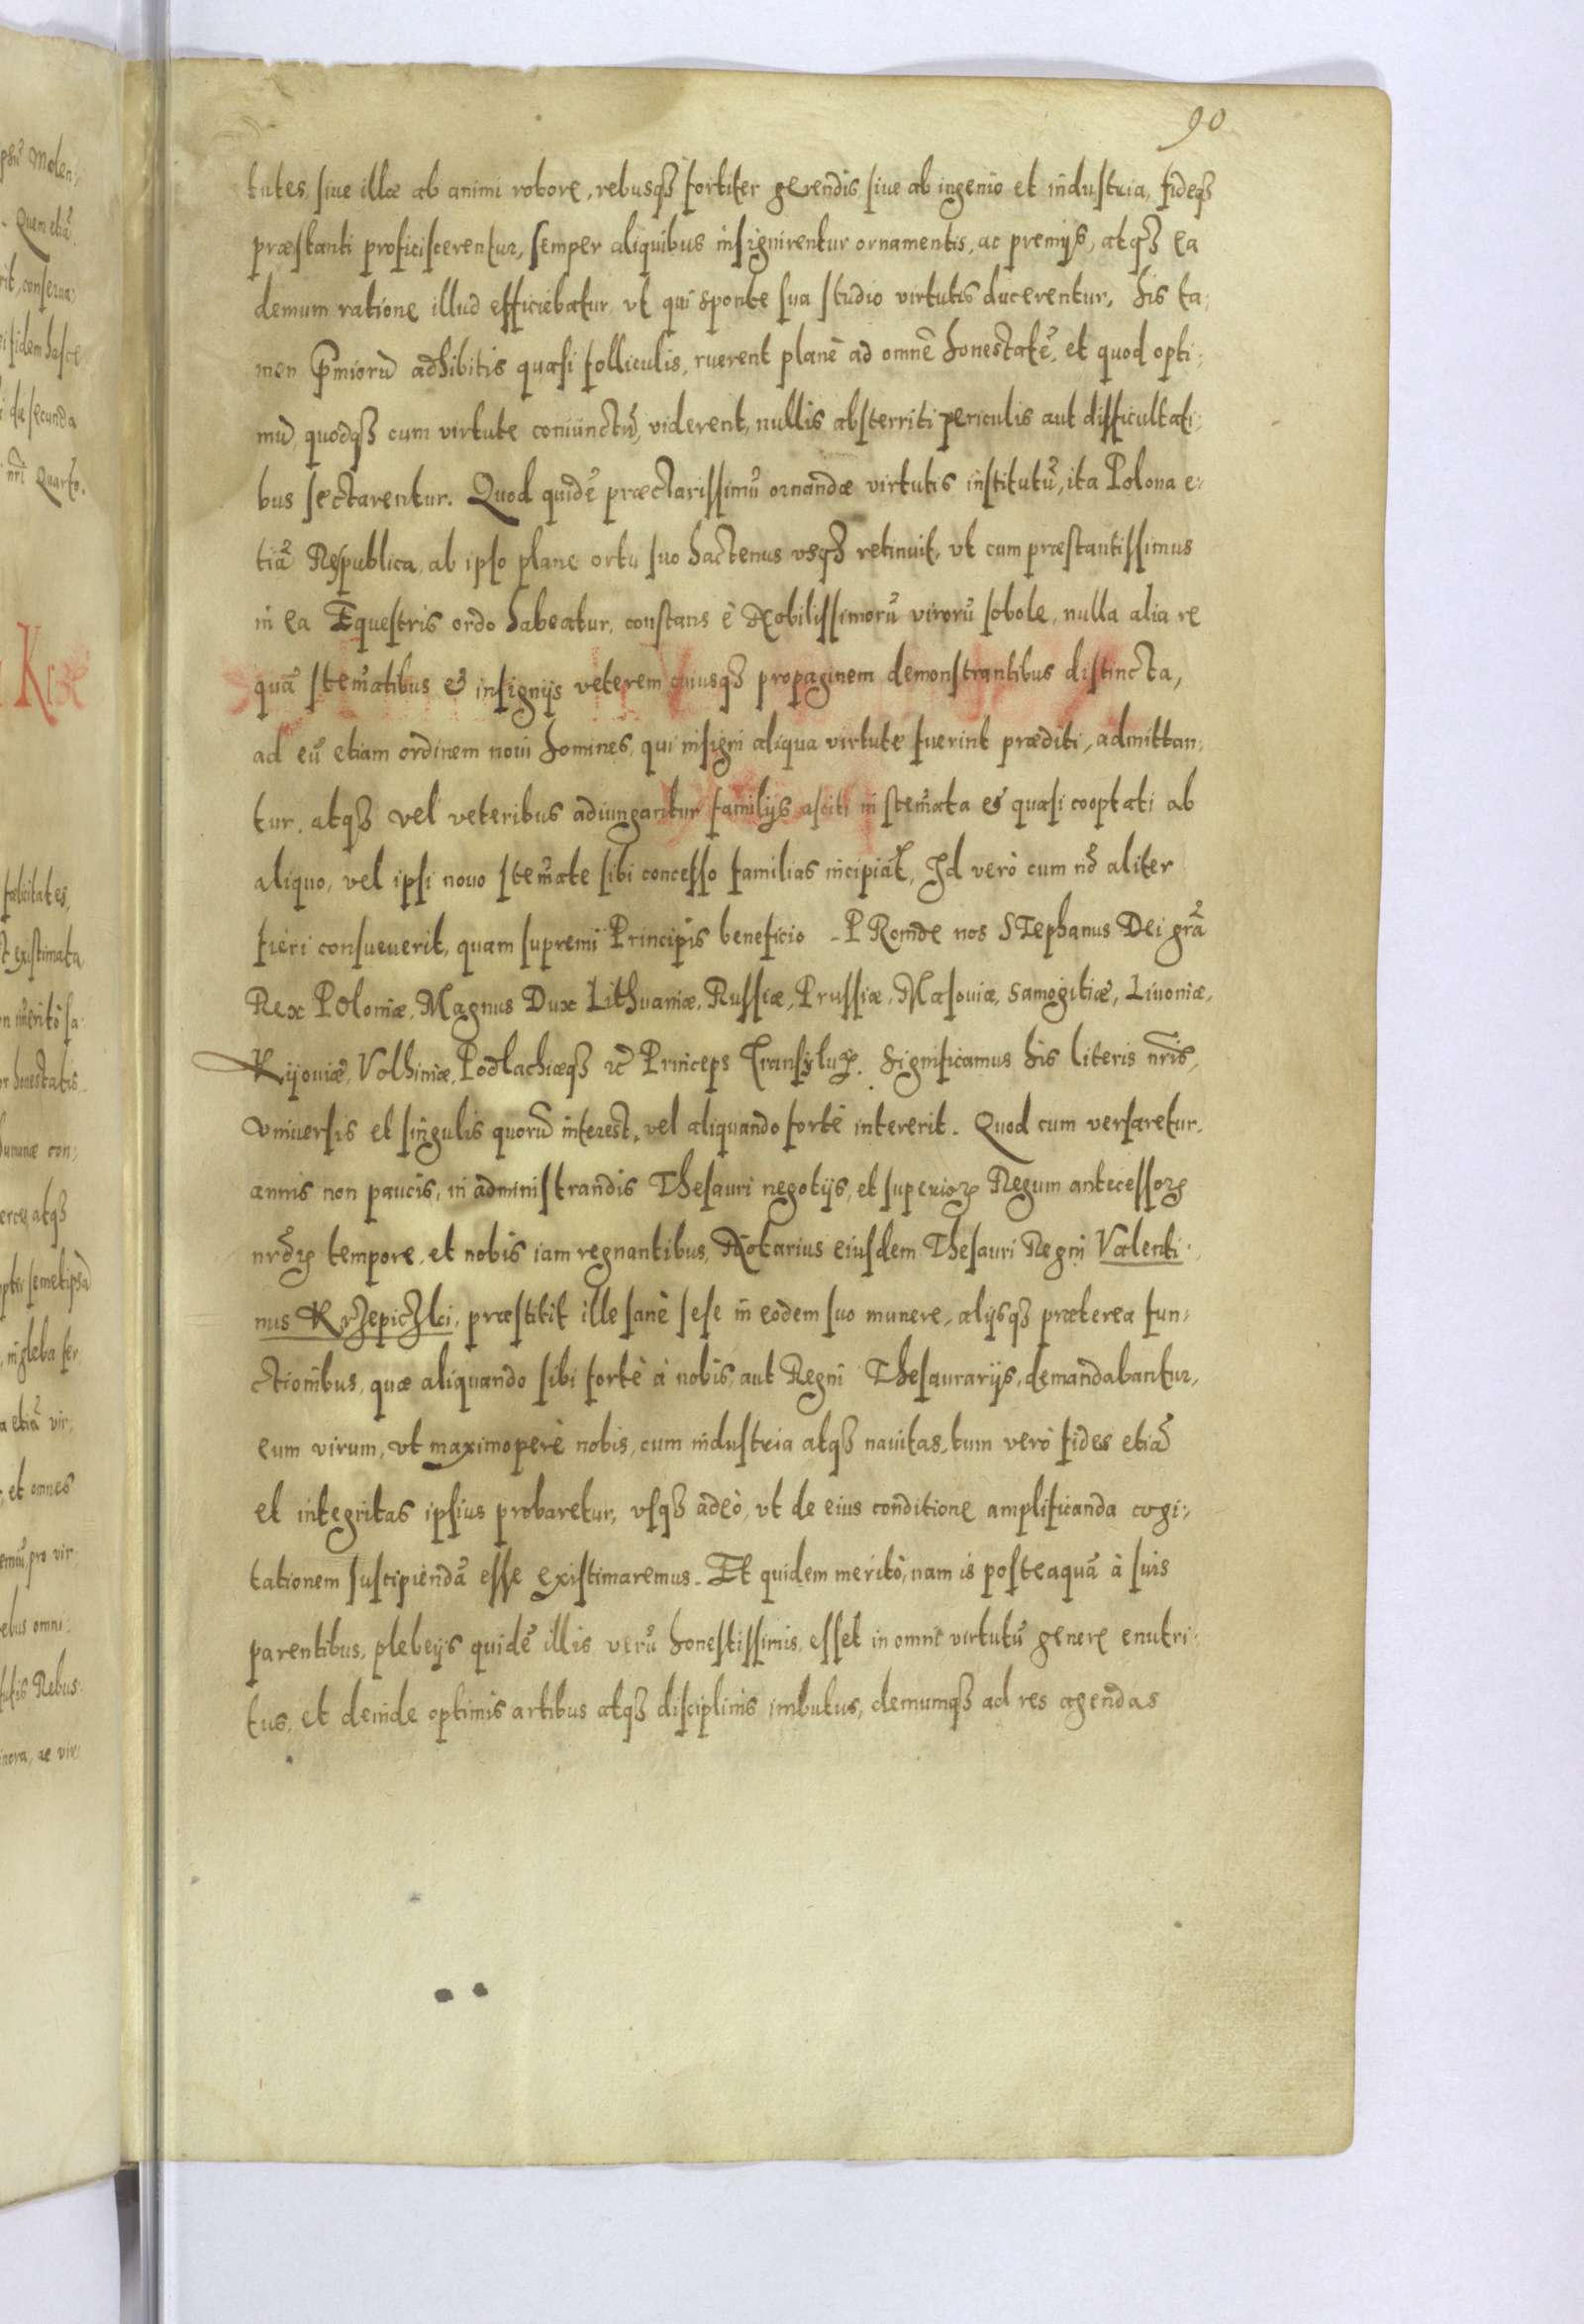 90
tutes, siue illæ ab animi robore, rebusqꝫ fortiter gerendis siue ab ingenio et industria, fideqꝫ
præstanti proficiscerentur, semper aliquibus insignirentur ornamentis, ac premijs, atqꝫ ea
demum ratione illud efficiebatur, vt qui sponte sua studio virtutis ducerentur, his ta;
men p̄miorū adhibitis quasi folliculis, ruerent planè ad omnē honestatē, et quod opti;
mū, quodqꝫ cum virtute coniunctū, viderent, nullis absterriti periculis aut difficultati;
bus sectarentur. Quod quidē præclarissimū ornandæ virtutis institutū, ita Polona e;
tiā Respublica, ab ipso plane ortu suo hactenus vsqꝫ retinuit, vt cum præstantissimus
in ea Equestris ordo habeatur, constans è Nobilissimorū virorū sobole, nulla alia re
quā stem̄atibus & insignijs veterem cuiusqꝫ propaginem demonstrantibus distincta,
ad eū etiam ordinem noui homines, qui insigni aliqua virtute fuerint præditi, admittan;
tur, atqꝫ vel veteribus adiungantur familijs asciti in stem̄ata & quasi cooptati ab
aliquo, vel ipsi nouo stem̄ate sibi concesso familias incipiāt, Id verò cum nō aliter
fieri consueuerit, quam supremi Principis beneficio - PRoinde nos STephanus Dei grā
Rex Poloniæ, Magnus Dux Lithuaniæ, Russiæ, Prussiæ, Masouiæ, Samogitiæ, Liuoniæ,
Kijouiæ, Volhiniæ, Podlachiæqꝫ ꝛc̄ Princeps Transyluꝝ. Significamus his literis nr̄is,
vniuersis et singulis quorū interest, vel aliquando fortè intererit. Quod cum versaretur
annis non paucis, in administrandis Thesauri negotijs, et superioꝝ Regum antecessoꝝ
nr̄oꝝ tempore, et nobis iam regnantibus, Notarius eiusdem Thesauri Regni Valenti;
nus Krzepiczki, præstitit ille sanè sese in eodem suo munere, alijsqꝫ præterea fun;
ctionibus, quæ aliquando sibi fortè à nobis, aut Regni Thesaurarijs, demandabantur,
eum virum, vt maximoperè nobis, cum industria atqꝫ nauitas, tum verò fides etiā
et integritas ipsius probaretur, vsqꝫ adeò, vt de eius conditione amplificanda cogi;
tationem suscipiendā esse existimaremus. Et quidem meritò, nam is posteaquā à suis
parentibus, plebeijs quidē illis verū honestissimis, esset in omni virtutū genere enutri;
tus, et deinde optimis artibus atqꝫ disciplinis imbutus, demumqꝫ ad res agendas